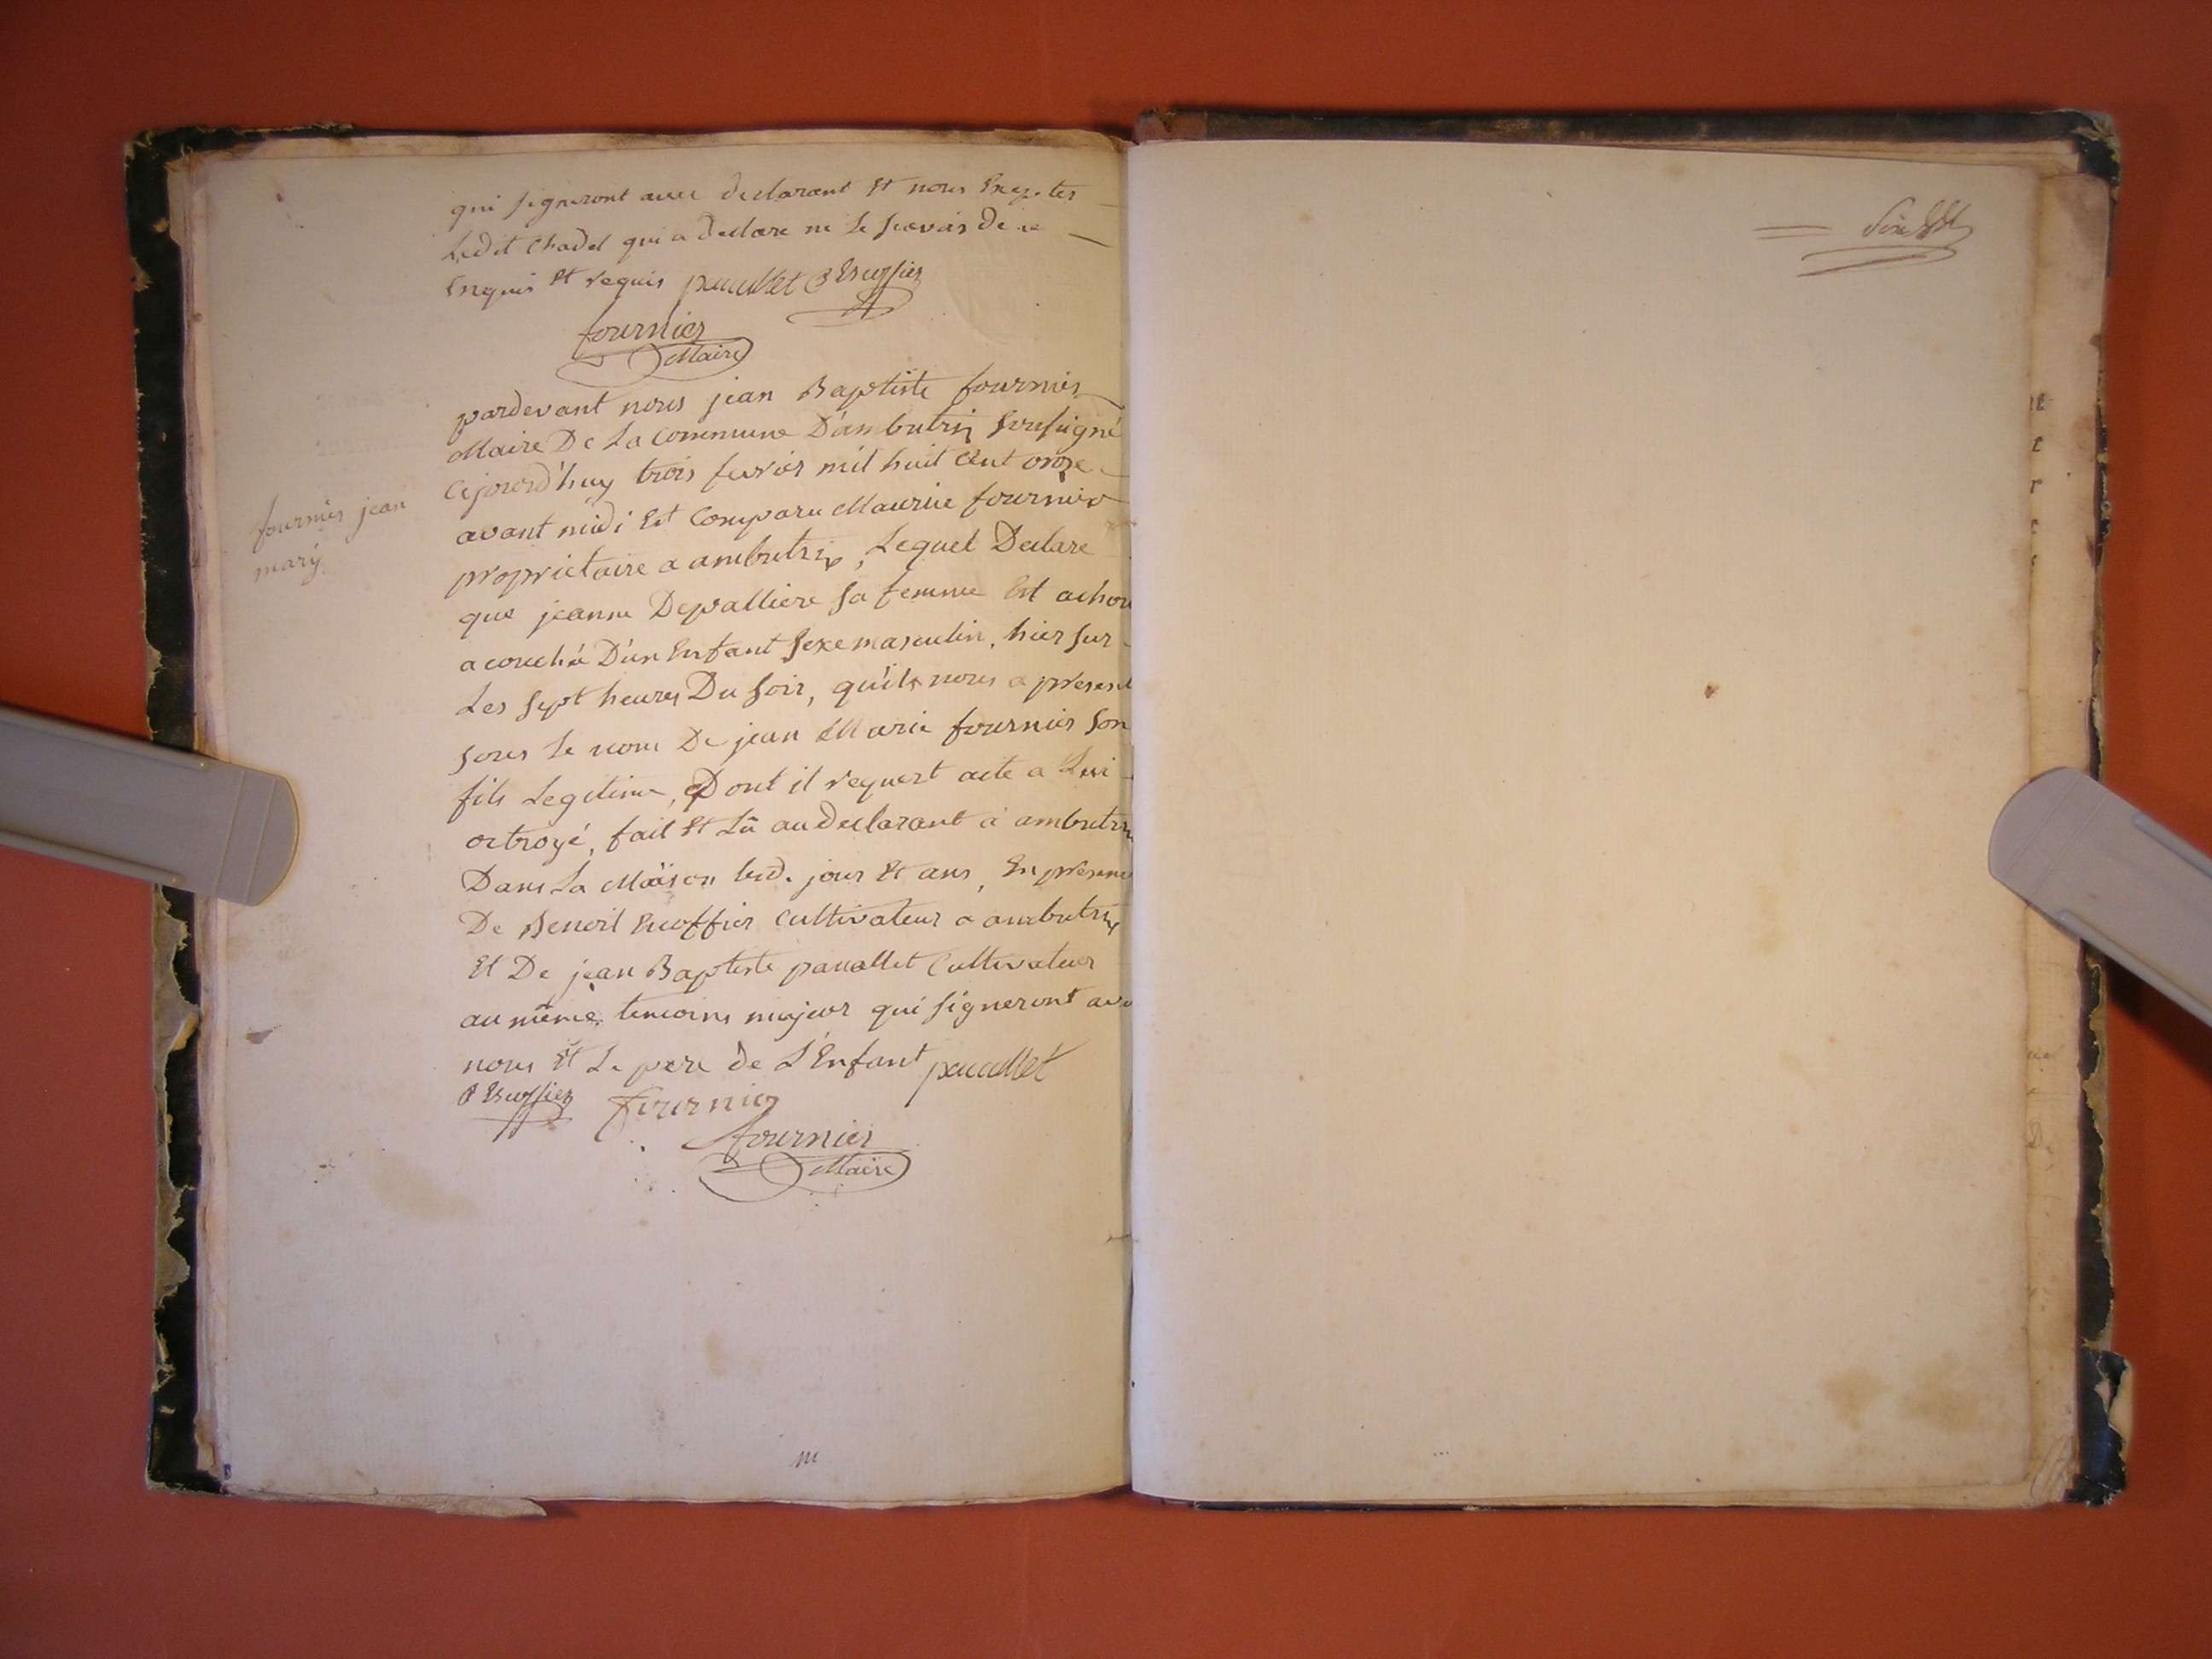 qui signeront avec declarant Et nous Exeptes
Ledit Chadel qui a declare ne Le scavoir de ce
Enquis Et requis pauallet B Escoffier
fournier
Maire
pardevant nous jean Baptiste fournier
Maire De La Commune D'ambutrix sousigné
cejourd'huy trois fevrier mil huit Cent onze
avant midi Est Comparu Maurice fournier
propriétaire a ambutrix, Lequel Declare
que jeanne Depalliere sa femme Est
acouchée D'un Enfant sexe masculin, hier sur
Les sept heures Du soir, qu'ils nous a present
sous Le nom De jean Marie fournier son
fils Legitime, Dont il requert acte a Lui
octroyé, fait Et Lû au declarant à ambutrix
Dans La Maison lesd. jour Et ans, En presence
De Benoit Escoffier Cultivateur a ambutrix
Et De jean Baptiste pauallet Cultivateur
au même, temoins majeur qui signeront avec
nous Et Le pere de L'Enfant pauallet
B Escoffier fournier
fournier
Maire
fournier jean
mary
m